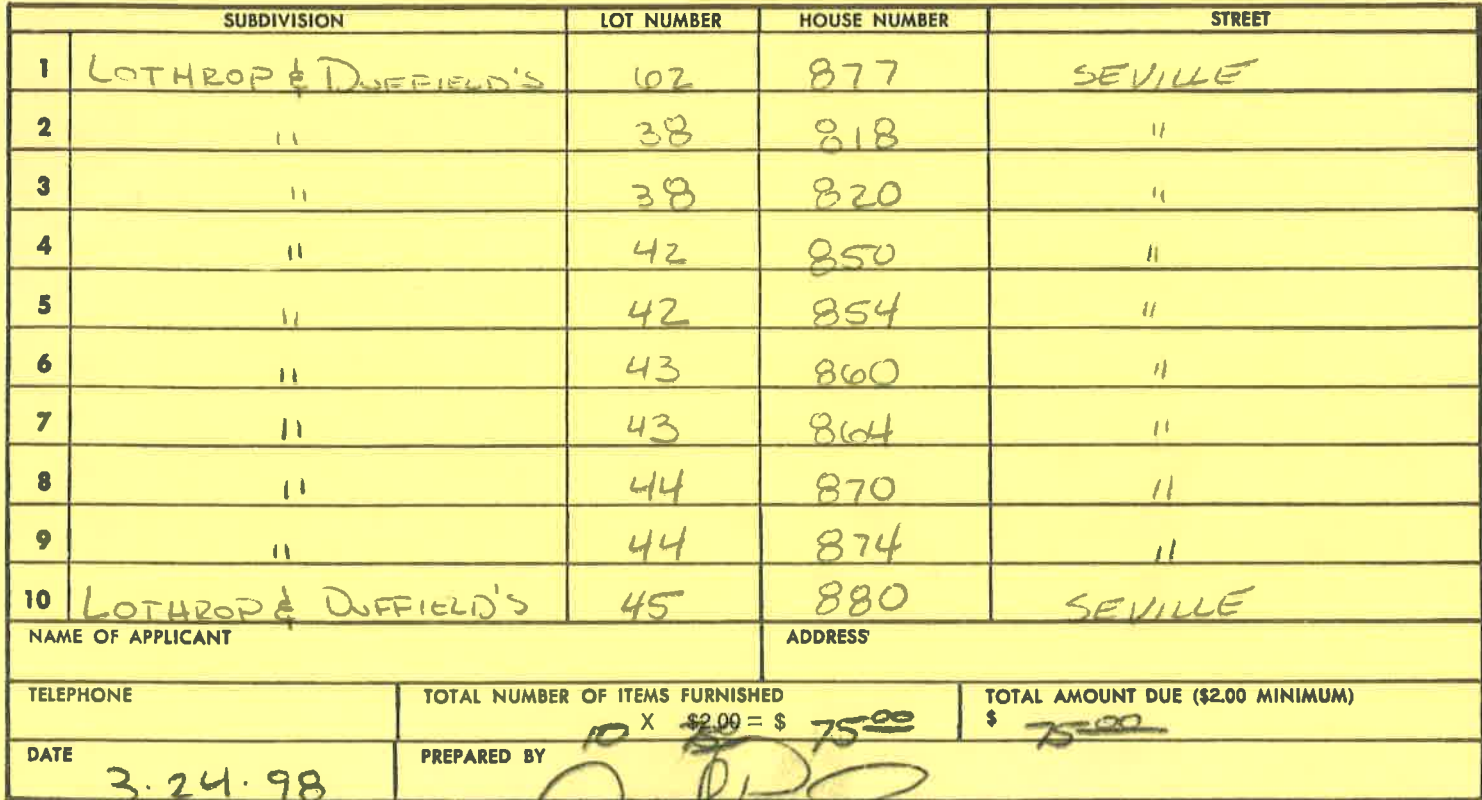 SUBDIVISION LOT NUMBER HOUSE NUMBER STREET
1 LOTHROP & DUFFIELD'S 62 877 SEVILLE
2 " 38 818 "
3 " 38 820 "
4 " 42 850 "
5 " 42 854 "
6 " 43 860 "
7 " 43 864 "
8 " 44 870 "
9 " 44 874 "
10 LOTHROP & DUFFIELD'S 45 880 SEVILLE
NAME OF APPLICANT ADDRESS
TELEPHONE TOTAL NUMBER OF ITEMS FURNISHED TOTAL AMOUNT DUE ($2.00 MINIMUM)
10 X $2.00 = $ 75.00 $ 75.00
DATE PREPARED BY
3.24.98